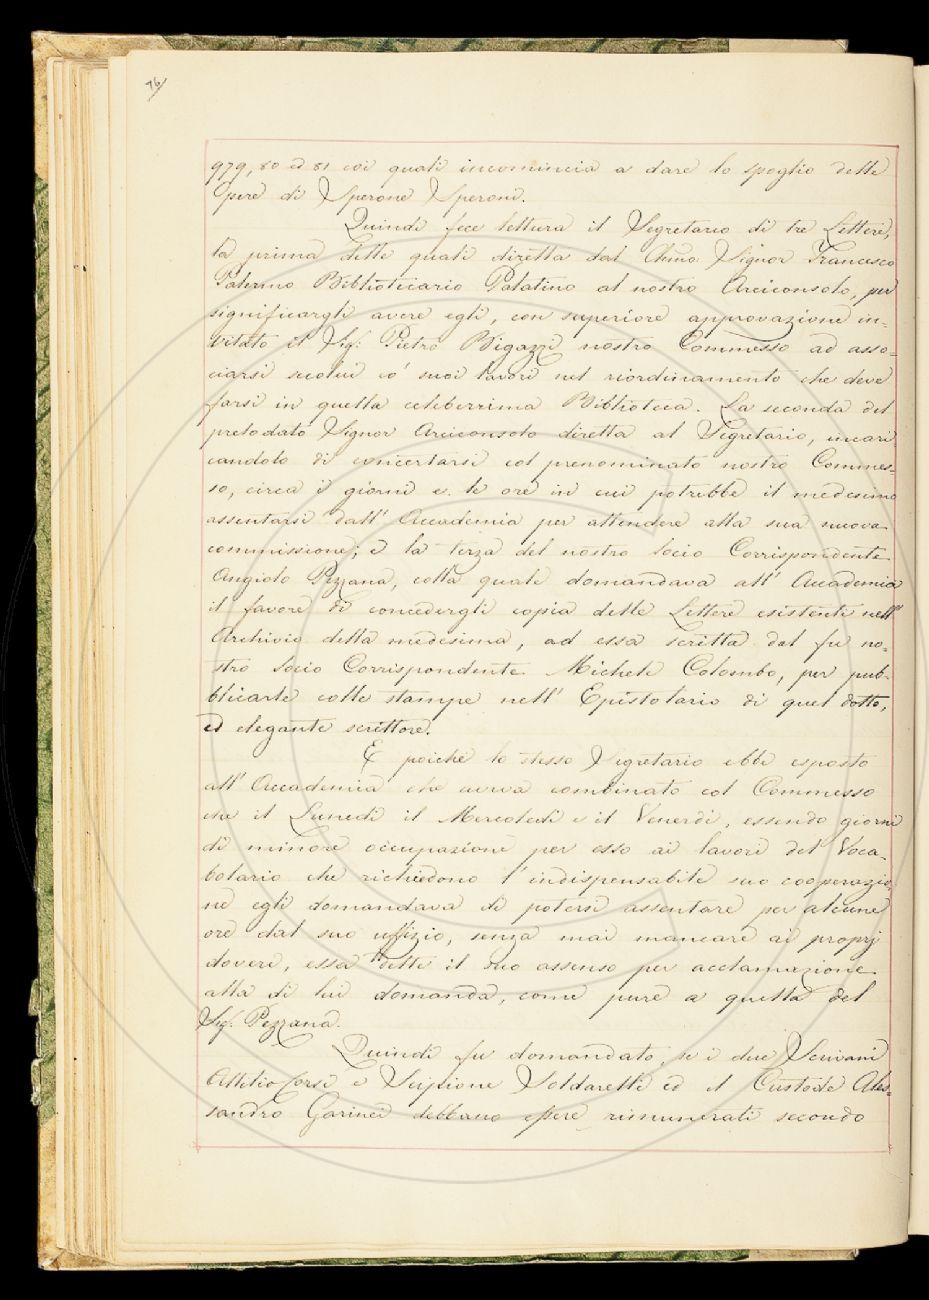 76
979, 80 ed 81 coi quali incomincia a dare lo spoglio delle
Opere di Sperone Speroni.
Quindi fece lettura il Segretario di tre Lettere,
la prima delle quali diretta dal Chmo. Signor Francesco
Palermo Bibliotecario Palatino al nostro Arciconsolo, per
significargli avere egli, con superiore approvazione in-
vitato il Sig: Pietro Bigazzi nostro Commesso ad asso-
ciarsi secolui co' suoi lavori nel riordinamento che deve
farsi in quella celeberrima Biblioteca. La seconda del
prelodato Signor Arciconsolo diretta al Segretario, incari
candolo di concertarsi col prenominato nostro Commes-
so, circa i giorni e le ore in cui potrebbe il medesimo
assentarsi dall' Accademia per attendere alla sua nuova
commissione; e la terza del nostro Socio Corrispondente
Angiolo Pezzana, colla quale domandava all' Accademia
il favore di concedergli copia delle Lettere esistenti nell'
Archivio della medesima, ad essa scritte dal fu no-
stro Socio Corrispondente Michele Colombo, per pub-
blicarle colle stampe nell' Epistolario di quel dotto,
ed elegante scrittore.
E poichè lo stesso Segretario ebbe esposto
all' Accademia che aveva combinato col Commesso
che il Lunedì il Mercoledì e il Venerdì, essendo giorni
di minore occupazione per esso ai lavori del Voca-
bolario che richiedono l' indispensabile sua cooperazio-
ne egli domandava di potersi assentare per alcune
ore dal suo uffizio, senza mai mancare ai proprj
doveri, essa dette il suo assenso per acclamazione
alla di lui domanda, come pure a quella del
Sig. Pezzana.
Quindi fu domandato, se i due Scrivani
Attilio Corsi e Scipione Soldarelli ed il Custode Ales-
sandro Garinei debbano essere rimunerati secondo